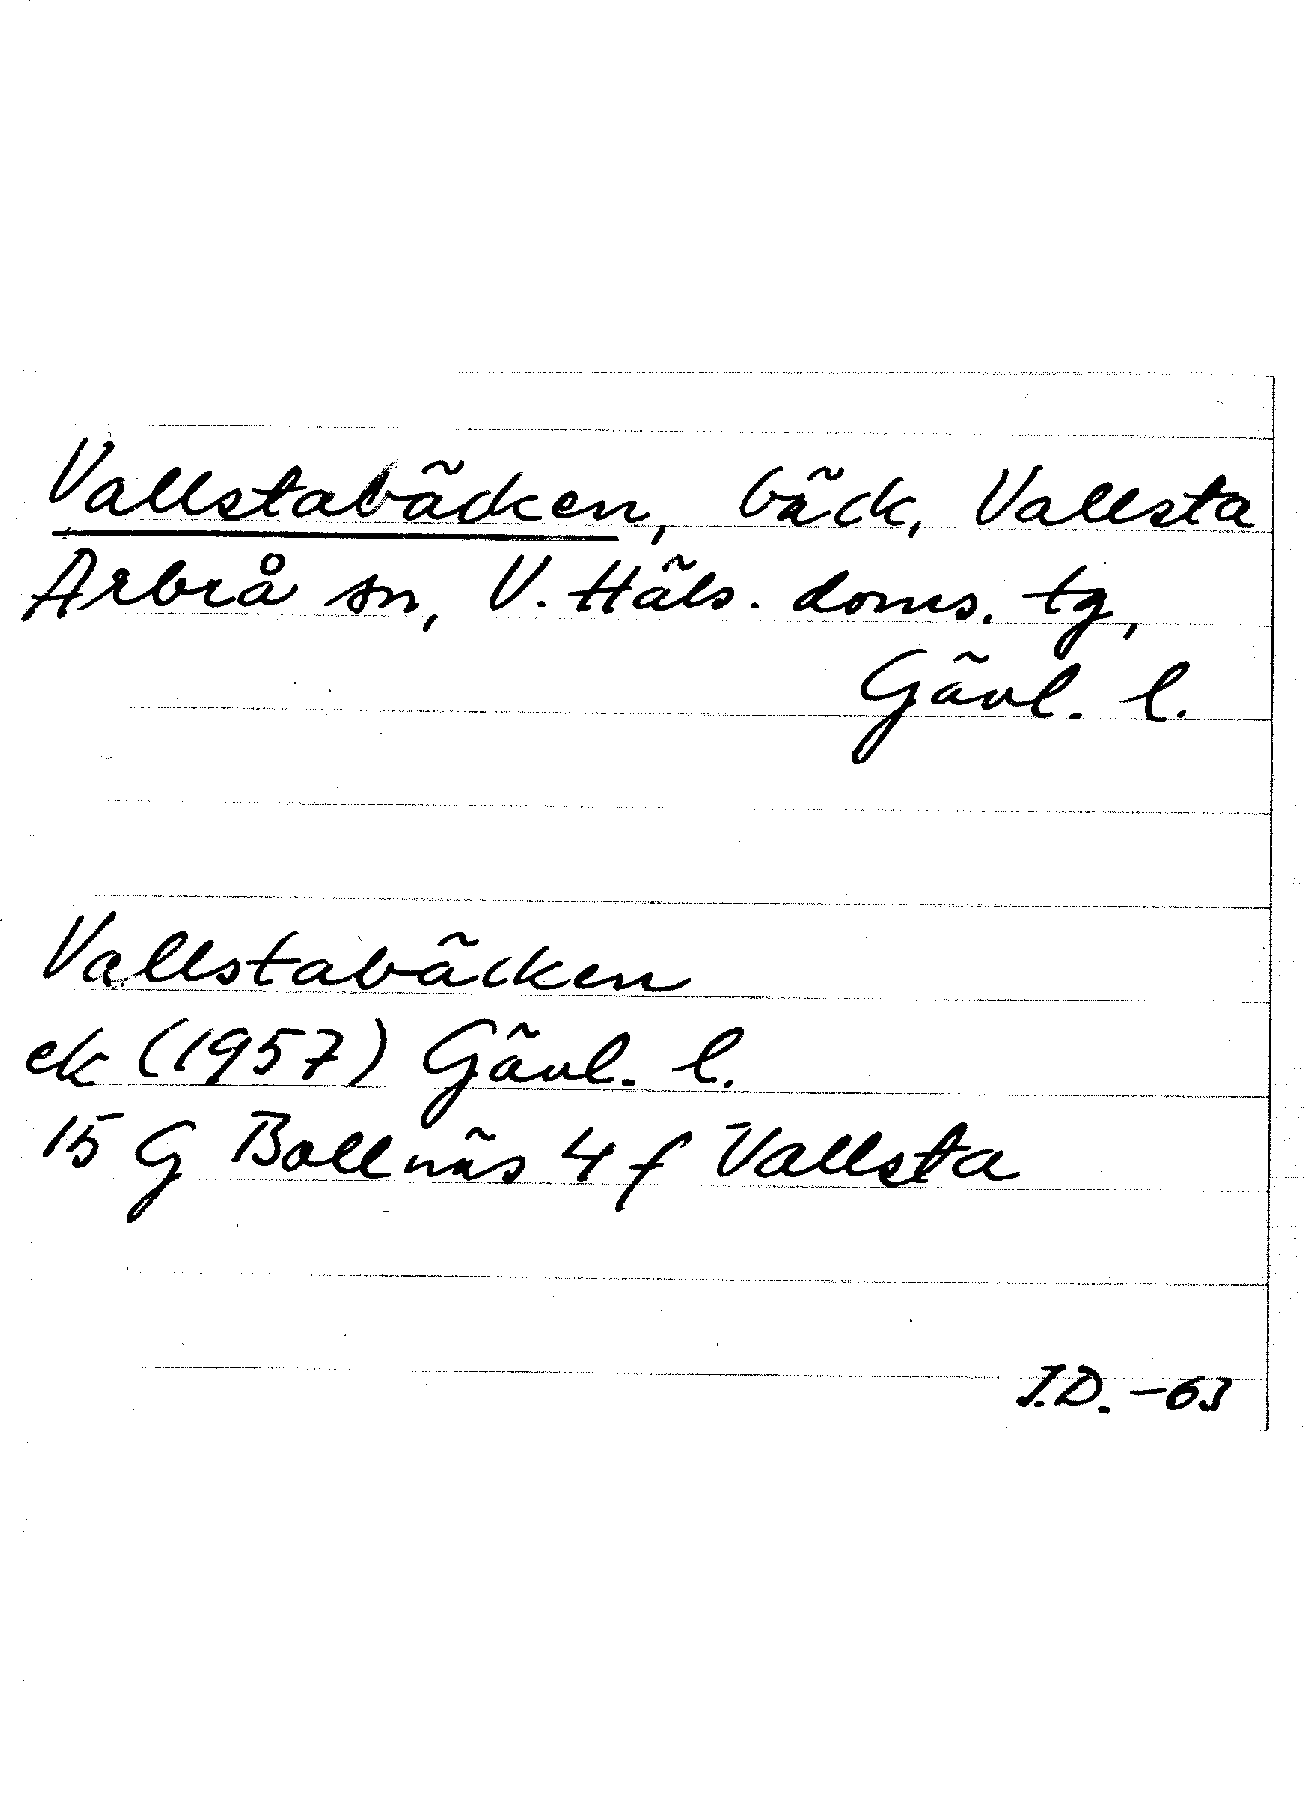 Vallstabäcken, bäck, Vallsta
Arbrå sn, V. Häls. doms. tg,
Gävl. l.
Vallstabäcken
ek (1957) Gävl. l.
15 G Bollnäs 4 f Vallsta
I.D. -63